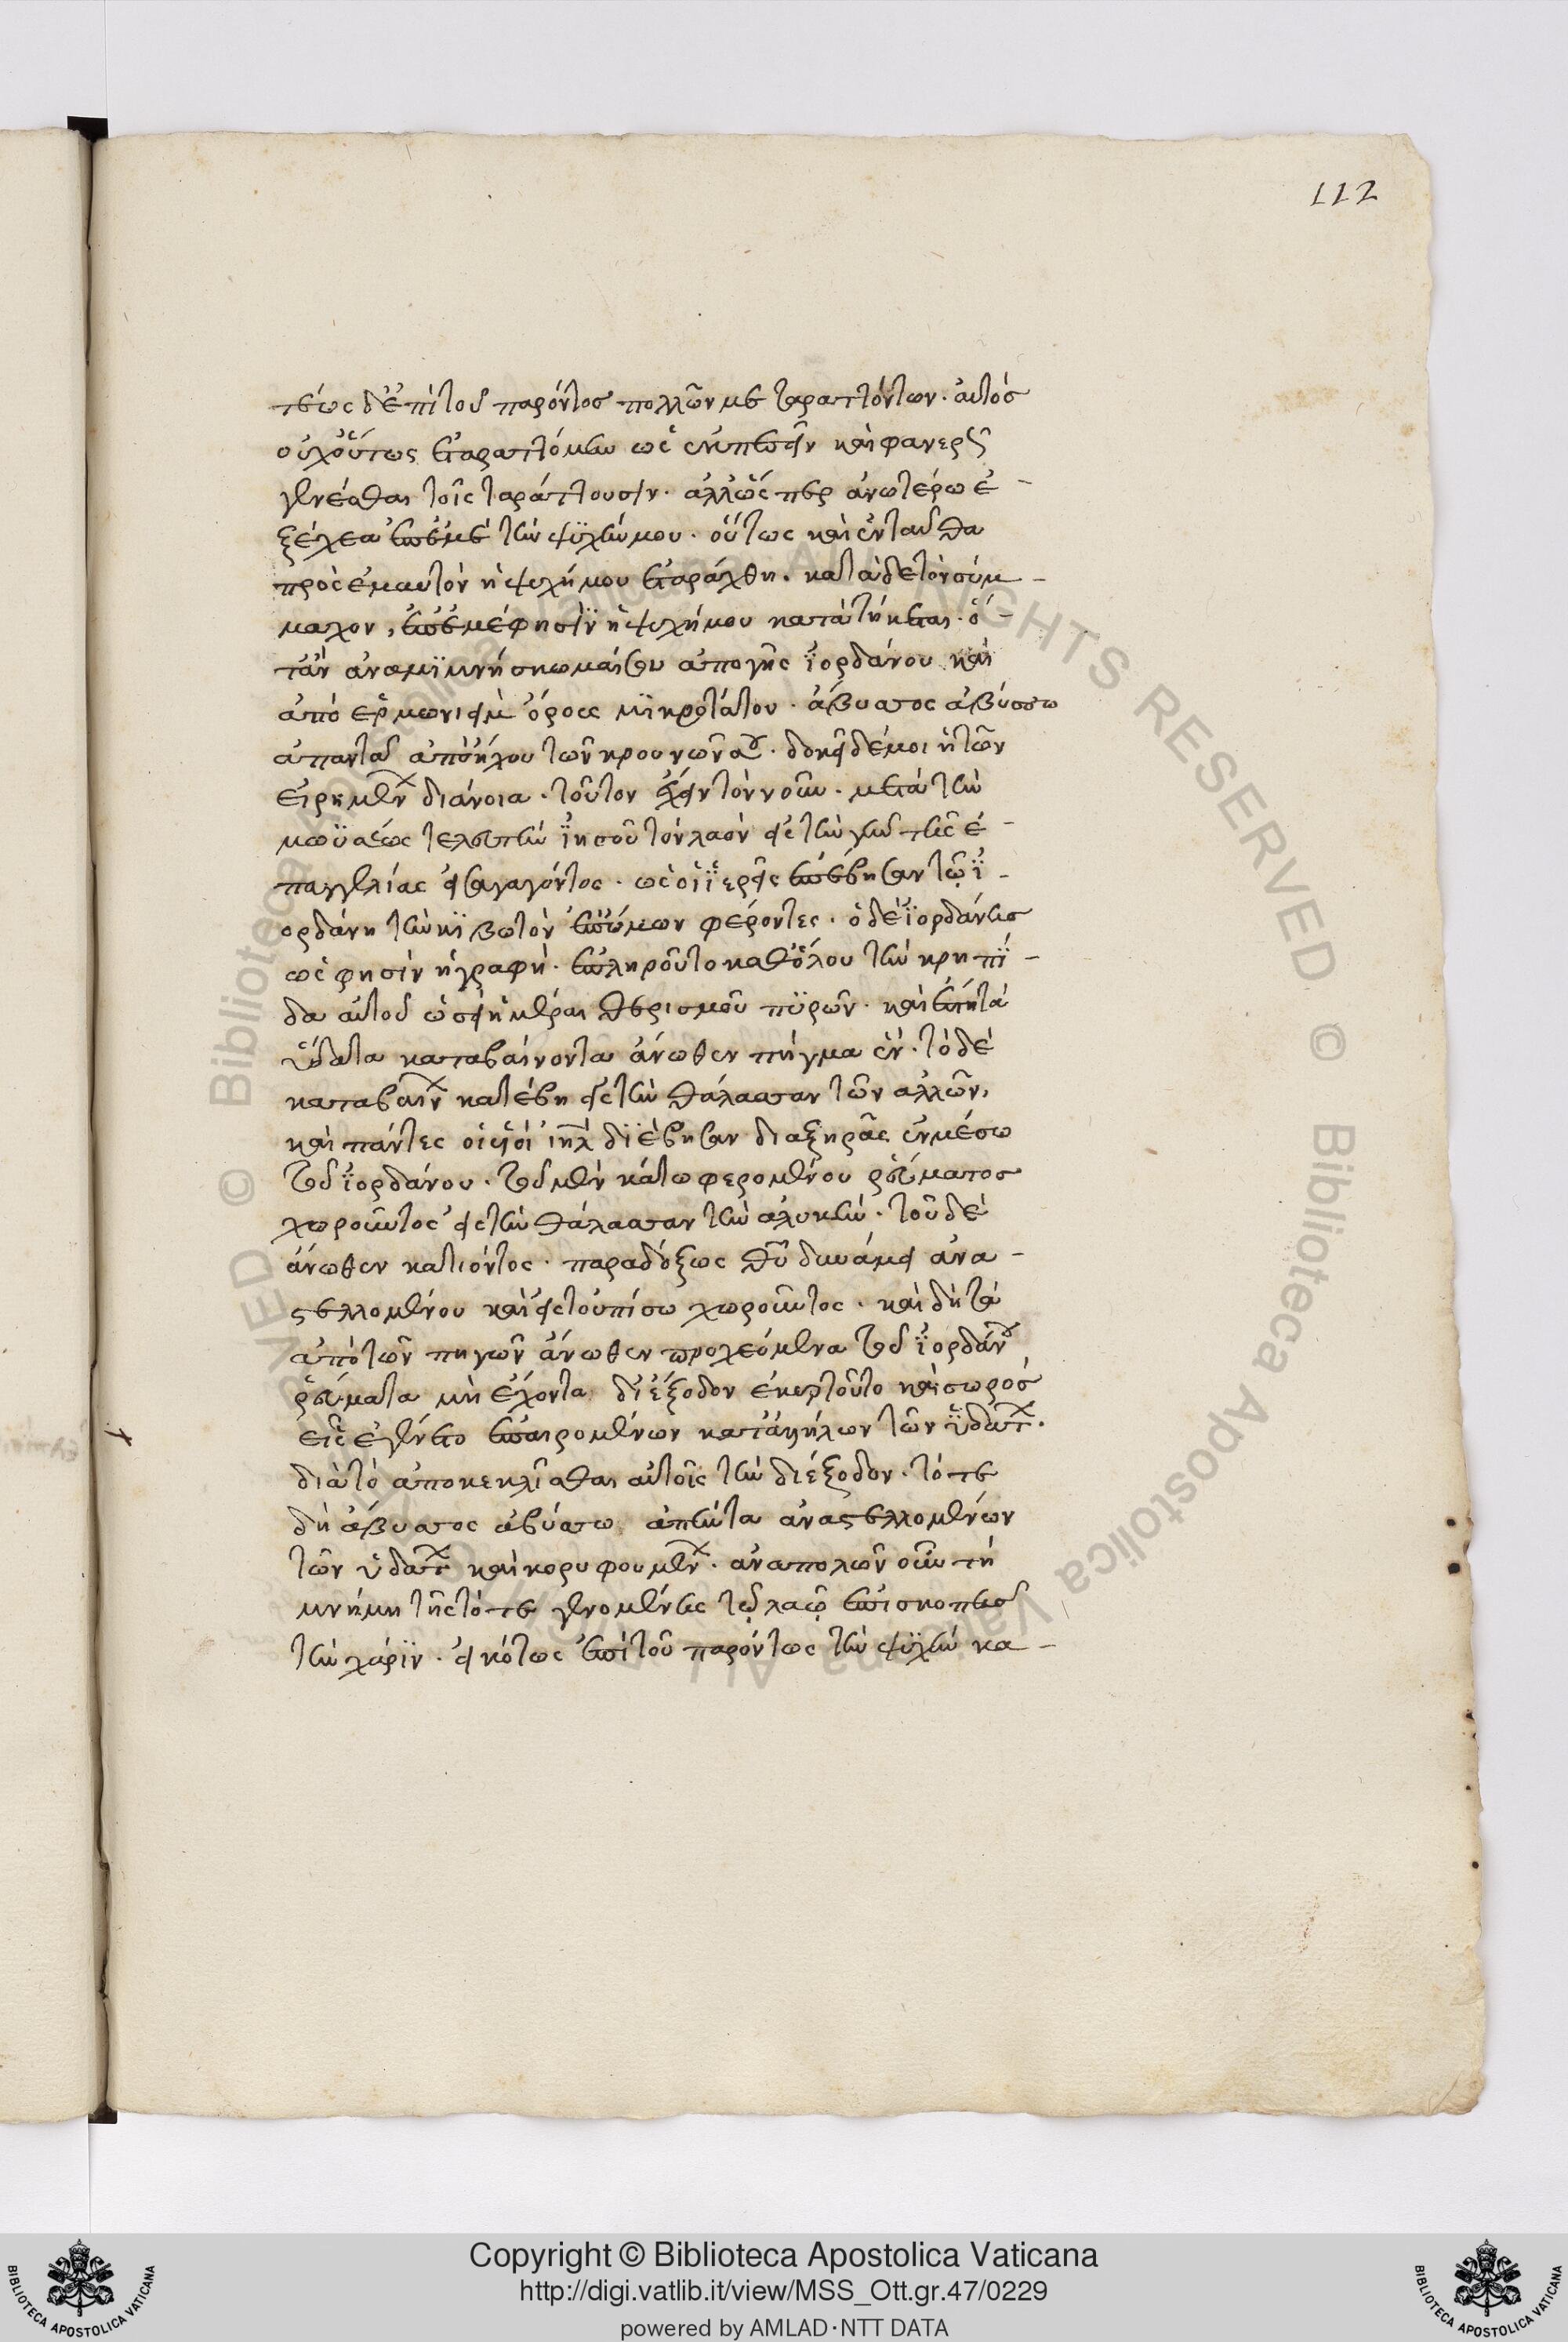 112
τέως δ' ἐπὶ τοῦ παρόντος πολλῶν με ταραττόντων. αὐτὸς
οὐχ οὕτως ἐταραττόμην ὡς ἐνυπ καὶ φανερὸς
γενέσθαι τοῖς ταράττουσιν. ἀλλ' ὥσπερ ἀνωτέρω ἐ-
ξέχεα ἐπ' ἐμὲ τὴν ψϋχήν μου. οὕτως καὶ ἐνταῦθα
πρὸς ἐμαυτὸν ἡ ψυχή μου ἐταράχθη. κατὰ δὲ τὸν σύμ-
μαχον, ἐπ' ἐμέ φησϊν ἡ ψυχή μου κατατήκεται. ὅ-
τἂν ἀναμϊμνήσκωμαί σου ἀπὸ γῆς ϊορδάνου καὶ
ἀπὸ ἑρμωνιεὶμ ὄρους μϊκροτάτου. ἄβυσσος ἀβύσσω
ἀπαντᾶ ἀπὸ ἤχου τῶν κρουνῶν σου. δοκεῖ δέ μοι ἡ τῶν
εἰρημένων διάνοια. τοῦτον ἔχειν τὸν νοῦν. μετὰ τὴν
μωϋσέως τελευτὴν ϊησοῦ τὸν λαὸν εἰς τὴν γῆν τῆς ἐ-
παγγελίας εἰσαγαγόντος. ὡς οἱ ϊερεῖς ἐπέβησαν τῷ ϊ-
ορδάνη τὴν κϊβωτὸν ἐπ' ὤμων φέροντες. ὁ δὲ ϊορδάνης
ὥς φησὶν ἡ γραφὴ. ἐπληροῦτο καθ' ὅλου τὴν κρηπϊ-
δα αὐτοῦ ὡσεὶ ἡμέραι θερισμοῦ πϋρῶν. καὶ ἔστη τὰ
ὕδατα καταβαίνοντα ἄνωθεν πῆγμα ἕν. τὸ δὲ
καταβαῖνον κατέβη εἰς τὴν θάλασσαν τῶν ἁλλῶν,
καὶ πάντες οἱ υἱοὶ ιηλ διέβησαν διὰ ξηρᾶς ἐν μέσω
τοῦ ϊορδάνου. τοῦ μὲν κάτω φερομένου ῥεύματος
χωροῦντος εἰς τὴν θάλασσαν τὴν ἁλυκήν. τοῦ δὲ
ἄνωθεν κατιόντος. παραδόξως θυ δυνάμει ἀνα-
στελλομένου καὶ εἰς τοὐπίσω χωροῦντος. καὶ δὴ τὰ
ἀπὸ τῶν πηγῶν ἄνωθεν προχεόμενα τοῦ ϊορδάνου
ῥεύματα μὴ ἔχοντα διέξοδον ἐκυρτοῦτο καὶ σωρὸς
εἷς ἐγένετο ἐπαιρομένων κατ' ἀλλήλων τῶν ϋδάτων.
διὰ τὸ ἀποκεκλεῖσθαι αὐτοῖς τὴν διέξοδον. τότε
δὴ ἄβυσσος ἀβύσσω ἀπήντα ἀναστελλομένων
τῶν ὑδάτων καὶ κορυφουμένων. ἀναπολῶν οὖν τῆ
μνήμη τῆς τότε γενομένης τῷ λαῷ ἐπισκοπῆς
τὴν χάρϊν. εἰκότως ἐπὶ τοῦ παρόντως τὴν ψϋχὴν κα-